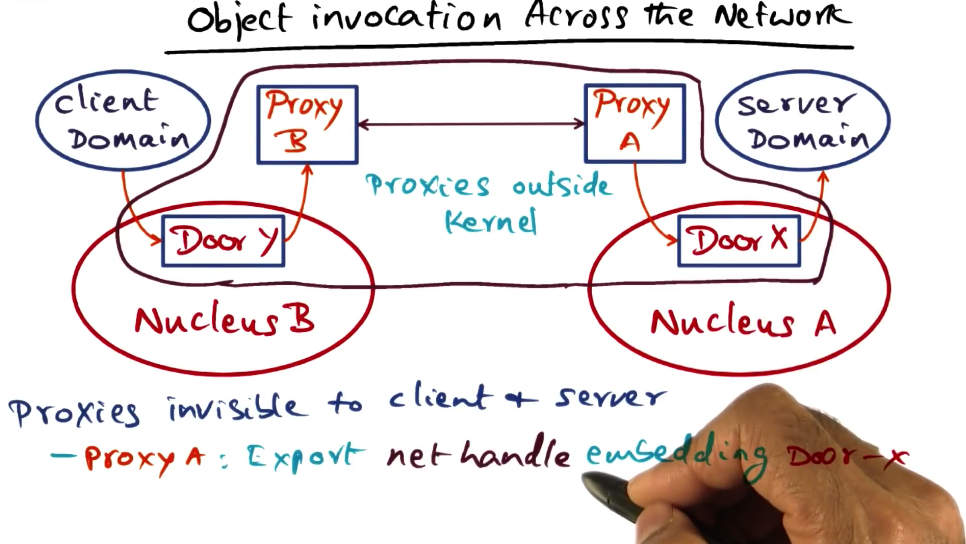 Object invocation Across the Network
client
Domain
Proxy
B
Proxy
A
server
Domain
Proxies outside
Kernel
Door Y
Door X
Nucleus B
Nucleus A
Proxies invisible to client + server
- Proxy A : Export net handle embedding Door-X